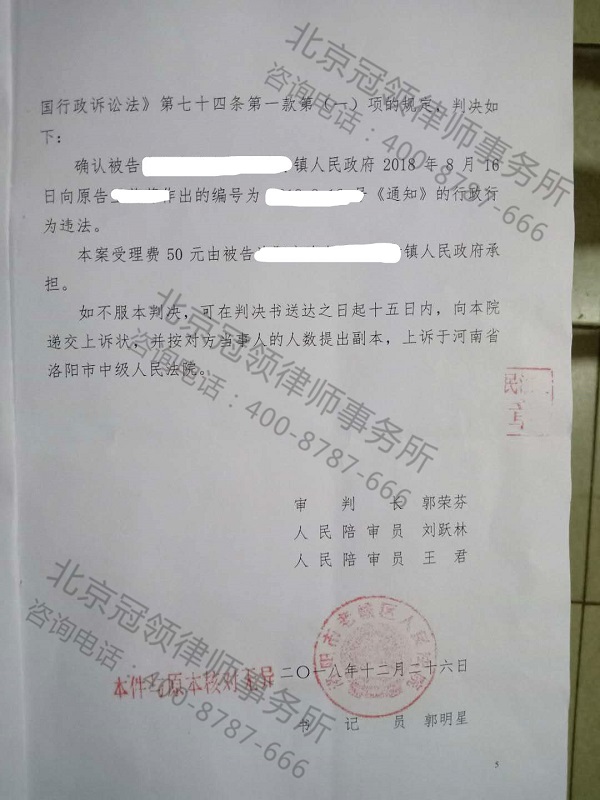 国行政诉讼法》第七十四条第一款第（一）项的规定，判决如
下：
确认被告 镇人民政府 2018 年 8 月 16
日向原告 作出的编号为 号《通知》的行政行
为违法。
本案受理费 50 元由被告 镇人民政府承
担。
如不服本判决，可在判决书送达之日起十五日内，向本院
递交上诉状，并按对方当事人的人数提出副本，上诉于河南省
洛阳市中级人民法院。
审判长 郭荣芬
人民陪审员 刘跃林
人民陪审员 王君
二〇一八年十二月二十六日
洛阳市老城区人民法院
本件与原本核对无异
书记员 郭明星
5
北京冠领律师事务所
咨询电话：400-8787-666
北京冠领律师事务所
咨询电话：400-8787-666
北京冠领律师事务所
咨询电话：400-8787-666